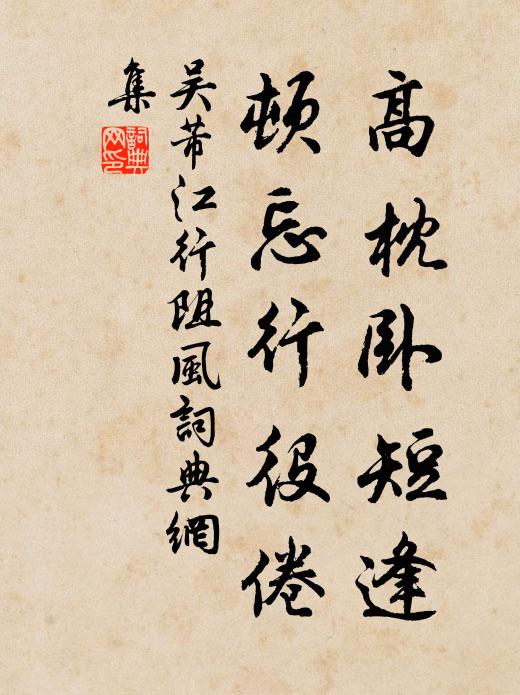 高枕卧短逢
頓忘行役倦
吴芾江行阻風詞典網
集
詞典
网印